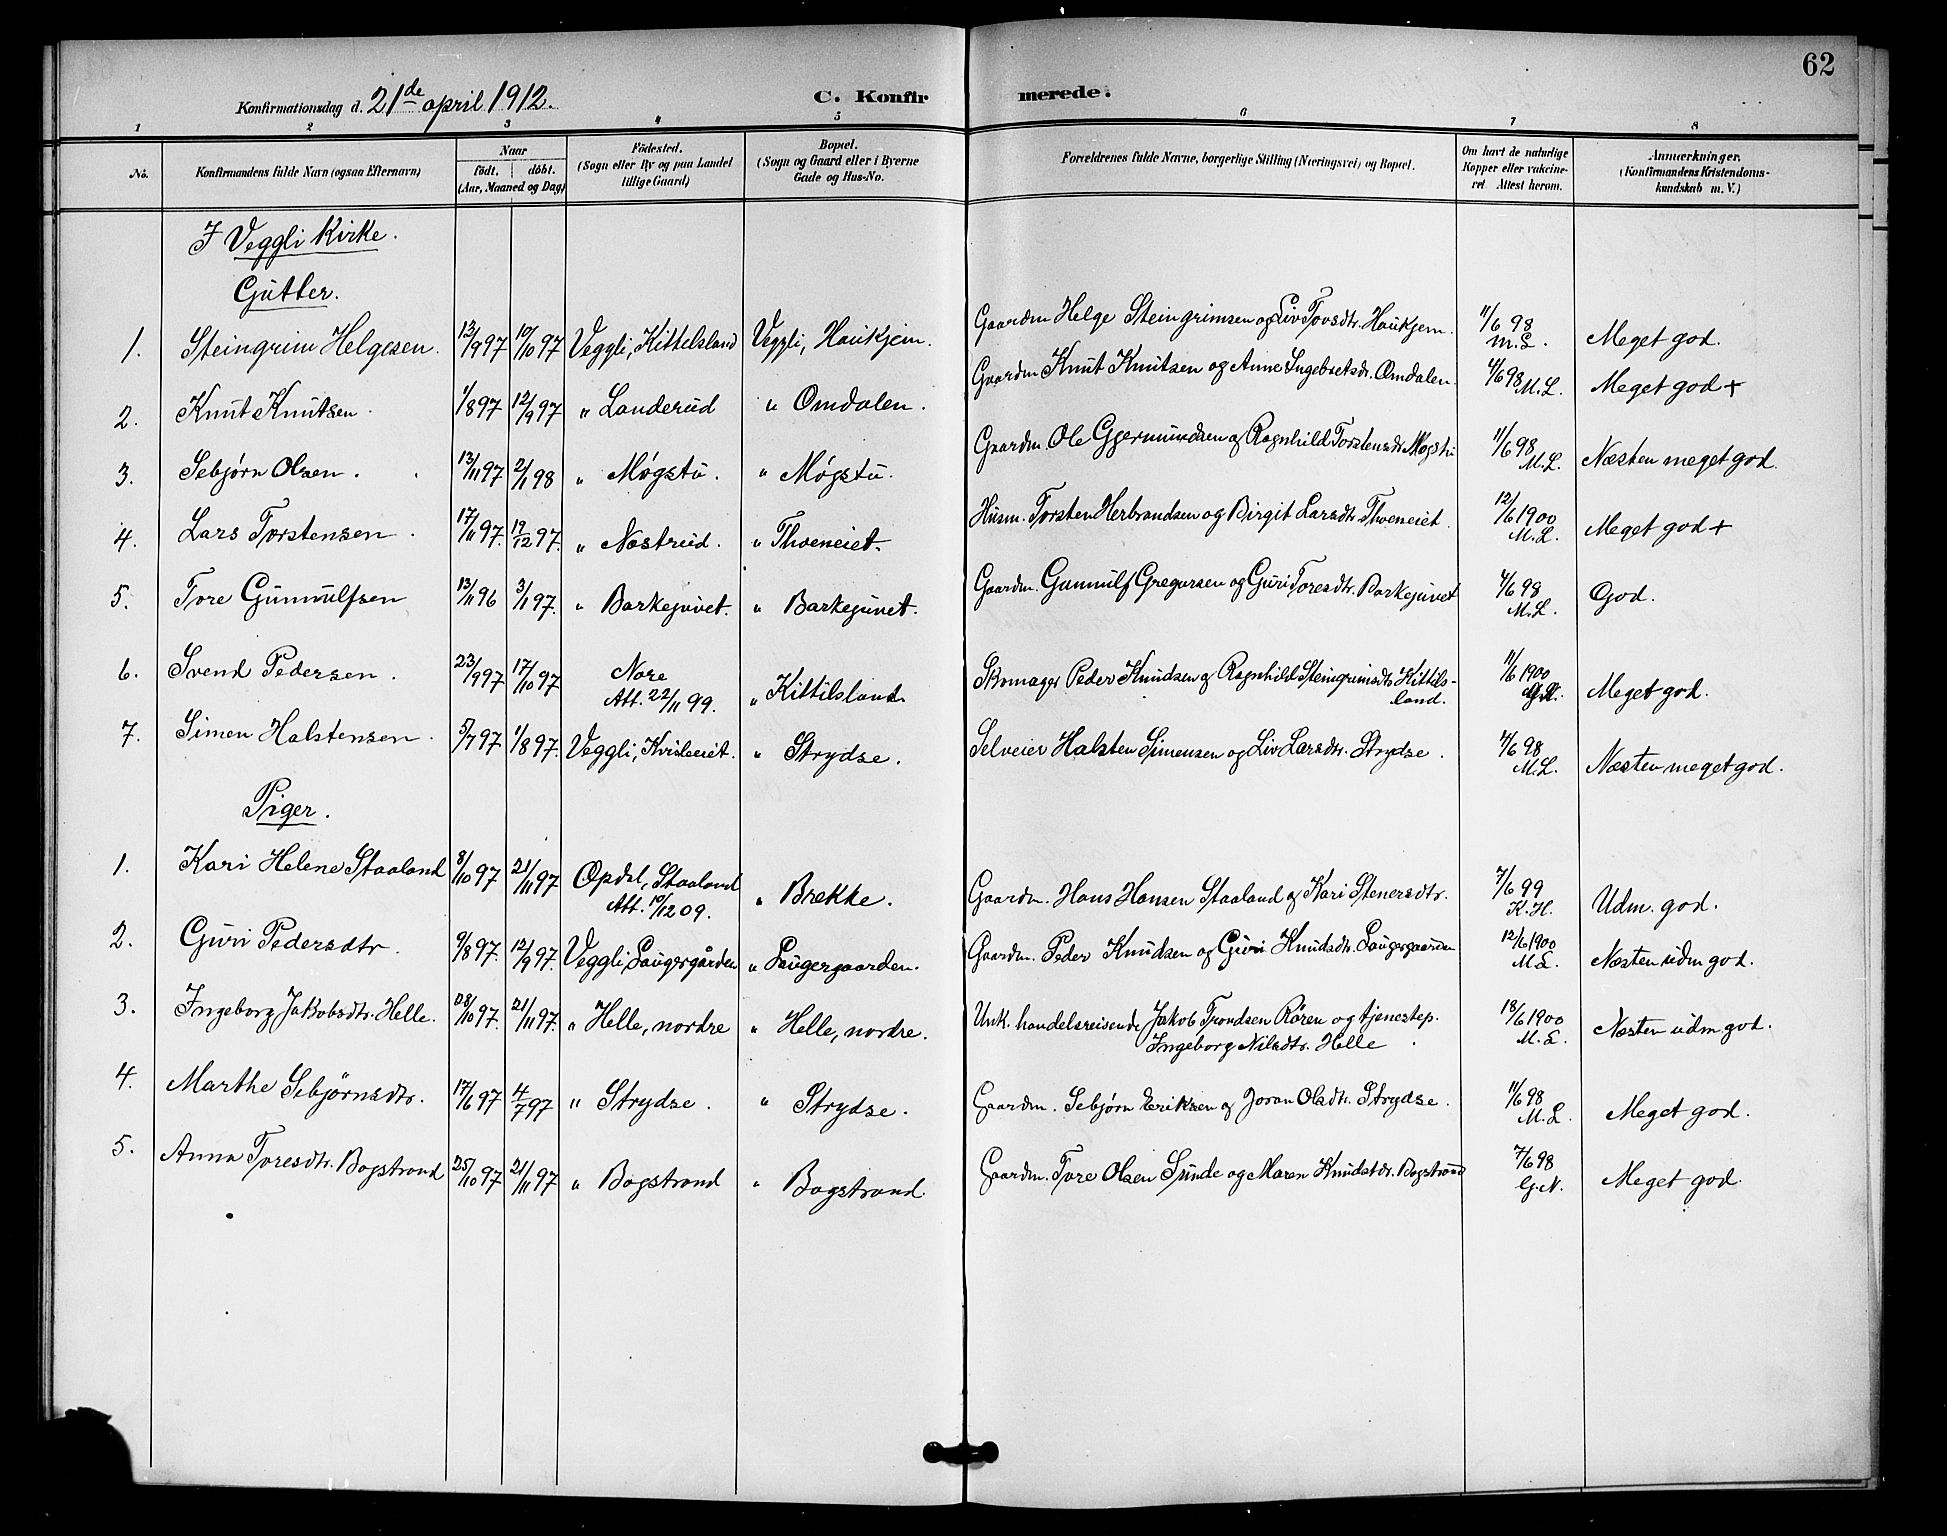 62
Konfirmationsdag d. 21de april 1912. C. Konfirmerede.
1 2 3 4 5 6 7 8
No. | Konfirmandens fulde Navn (ogsaa Efternavn) | Naar født. døbt. (Aar, Maaned og Dag) | Fødested. (Sogn eller By og paa Landet tillige Gaard) | Bopæl. (Sogn og Gaard eller i Byerne Gade og Hus-No.) | Forældrenes fulde Navne, borgerlige Stilling (Næringsvei) og Bopæl. | Om havt de naturlige Kopper eller vaccineret Attest herom. | Anmærkninger. (Konfirmandens Kristendomskundskab m. V.)
I Veggli Kirke.
Gutter.
1. Steingrim Helgesen. 13/9 97 10/10 97 Veggli, Kittelsland Veggli, Haukjem. Gaardm Helge Steingrimsen og Liv Tovsdtr. Haukjem. 11/6 98 M.L. Meget god.
2. Knut Knutsen. 1/8 97 12/9 97 " Landerud " Omdalen. Gaardm Knut Knutsen og Anne Ingebretsdr. Omdalen. 4/6 98 M.L. Meget god +
3. Sebjørn Olsen. 13/11 97 2/1 98 " Møgstu. " Møgstu. Gaardm. Ole Gjermundsen og Ragnhild Torstensdr. Møgstu 11/6 98 M.L. Næsten meget god.
4. Lars Torstensen. 17/11 97. 19/12 97. " Nostrud. " Thoeneiet. Husm. Torsten Herbrandsen og Birgit Larsdtr. Thoeneiet. 12/6 1900 M.L. Meget god +
5. Tore Gunnulfsen 13/11 96 3/1 97. " Barkejuvet. " Barkejuvet. Gaardm. Gunnulf Gregarsen og Guri Toresdtr. Barkejuvet 4/6 98 M.L. God.
6. Svend Pedersen. 23/9 97 17/10 97 Nore Att. 22/11 99. " Kittilsland. Skomager Peder Knudsen og Ragnhild Steingrimsdtr. Kittilsland. 11/6 1900 Meget god.
7. Simen Halstensen. 5/7 97 1/8 97. Veggli, Kvisleeiet. " Strydse. Selveier Halsten Simensen og Liv Larsdtr. Strydse. 4/6 98 M.L. Næsten meget god.
Piger.
1. Kari Helene Staaland 8/10 97 21/11 97 Opdal, Staaland Att. 10/12 09. " Brekke. Gaardm. Hans Hansen Staaland og Kari Stenersdtr. 7/6 99 K.H. Udm. god.
2. Guri Pedersdtr. 9/8 97. 12/9 97. Veggli, Laugergården " Laugergaarden. Gaardm. Peder Knudsen og Guri Knudsdtr. Laugergaarden 12/6 1900 M.L. Næsten udm god.
3. Ingeborg Jakobsdtr. Helle. 28/10 97. 21/11 97. " Helle, nordre " Helle, nordre. Unk. handelsreisende Jakob Trondsen Røren og tjenestep.
Ingeborg Nilsdtr. Helle. 18/6 1900 M.L. Næsten udm god.
4. Marthe Sebjörnsdtr. 17/6 97 4/7 97 " Strydse. " Strydse. Gaardm. Sebjørn Eriksen og Joran Olsdtr. Strydse. 11/6 98 M.L. Meget god.
5. Anna Toresdtr. Bogstrand 25/10 97 21/11 97 " Bogstrand " Bogstrand. Gaardm. Tore Olsen Lunde og Maren Knudstdr. Bogstrand 7/6 98 G.N. Meget god.